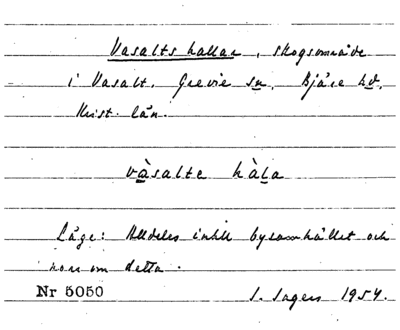 Vasalts hallar, skogsområde
i Vasalt, Grevie sn, Bjäre hd,
Krist. län.
vàsalte hàla
Läge: Alldeles intill bysamhället och
norr om detta.
Nr 5050
I. Ingers 1954.